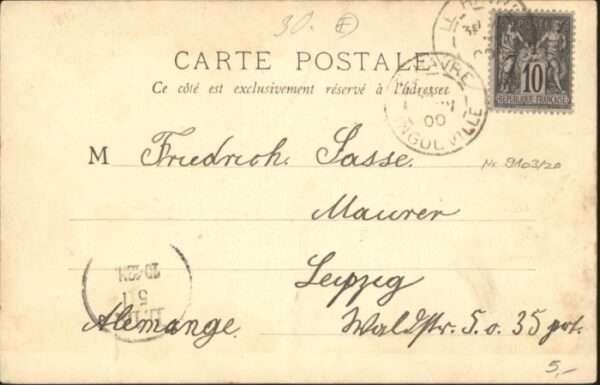 30.
CARTE POSTALE
Ce côté est exclusivement réservé à l'adresse
POSTE
10
REPUBLIQUE FRANÇAISE
LE HAVRE
00
INGOUVILLE
M Friedrich. Sasse.
Nr 9103/20
Maurer
Leipzig
Alemange. Waldstr. 5.o. 35 pot.
5
5,-